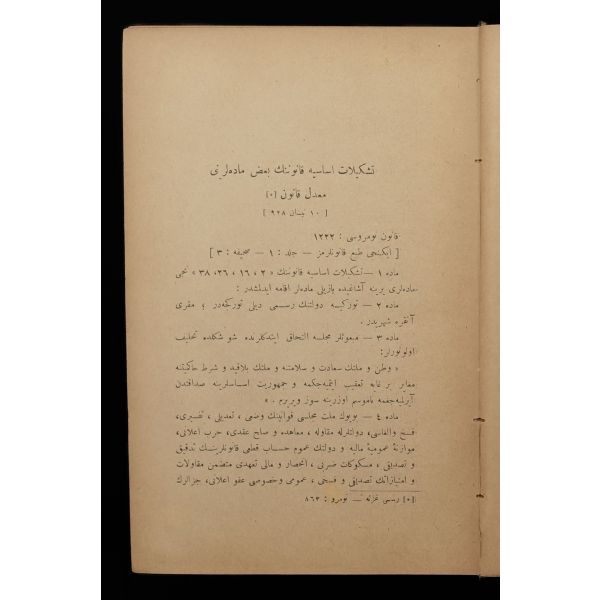 تشكيلات اساسيه قانوننك بعض ماده‌لرينى
معدل قانون [*]
[ ١٠ نيسان ٩٢٨ ]
قانون نومروسى : ١٢٢٢
[ ايكنجى طبع قانونلرمز — جلد : ١ — صحيفه : ٣ ]
ماده ١ — تشكيلات اساسيه قانوننك « ٢ ، ١٦ ، ٢٦، ٣٨ » نجى
ماده‌لرى يرينه آشاغيده يازيلى ماده‌لر اقامه ايدلمشدر :
ماده ٢ — توركيه دولتنك رسمى ديلى توركجه‌در ؛ مقرى
آنقره شهريدر .
ماده ٣ — مبعوثلر مجلسه التحاق ايتدكلرنده شو شكلده تحليف
اولونورلر :
« وطن و ملتك سعادت و سلامتنه و ملتك بلاقيد و شرط حاكميتنه
مغاير بر غايه تعقيب ايتميه‌جكمه و جمهوريت اساسلرينه صداقتدن
آيرلميه‌جغمه ناموسم اوزرينه سوز ويريرم . »
ماده ٤ — بويوك ملت مجلسى قوانينك وضعى ، تعديلى ، تفسيرى،
فسخ والغاسى، دولتلرله مقاوله ، معاهده و صلح عقدى، حرب اعلانى،
موازنهٔ عموميهٔ ماليه و دولتك عموم حساب قطعى قانونلرينك تدقيق
و تصديقى ، مسكوكات ضربى ، انحصار و مالى تعهدى متضمن مقاولات
و امتيازاتك تصديقى و فسخى ، عمومى وخصوصى عفو اعلانى، جزالرك
[*] رسمى غزته — نومرو : ٨٦٣